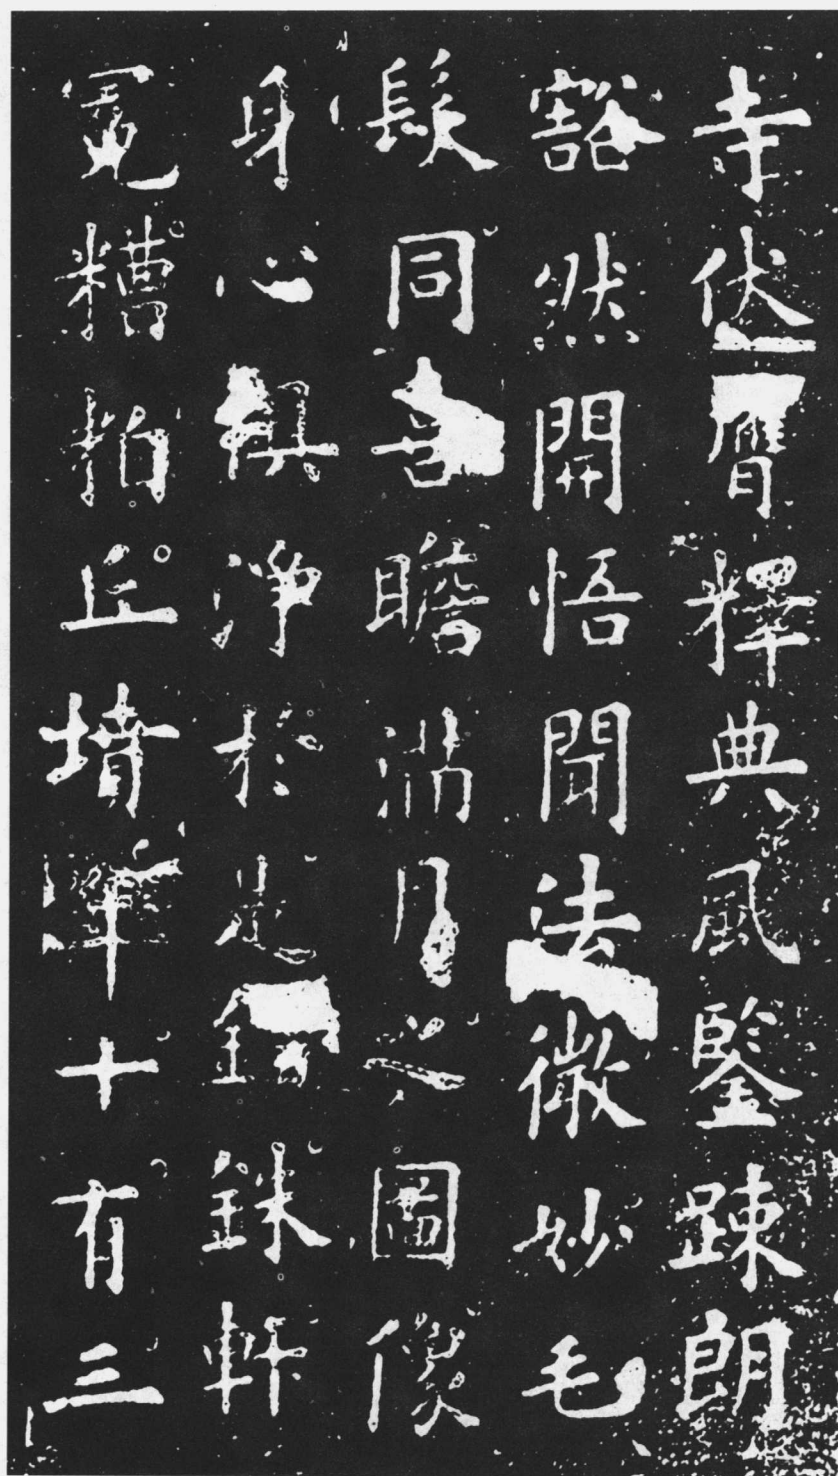 寺伏膺釋典風鑒踈朗
豁然開悟聞法微妙毛
髮同喜瞻滿月之圖像
身心俱淨於是錙銖軒
冕糟粕丘墳年十有三